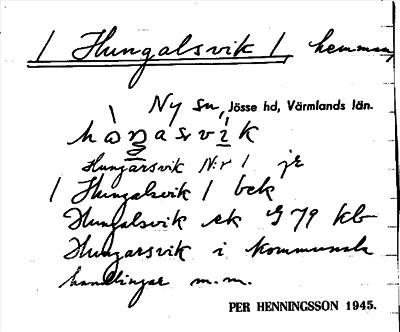 / Hungalsvik /, hemman,
Ny sn, Jösse hd, Värmlands län.
Hungarsvik N:r 1 je
/ Hungalsvik / bek
Hungalsvik ek G 79 kb
Hungarsvik i kommunala
handlingar m.m.
PER HENNINGSSON 1945.